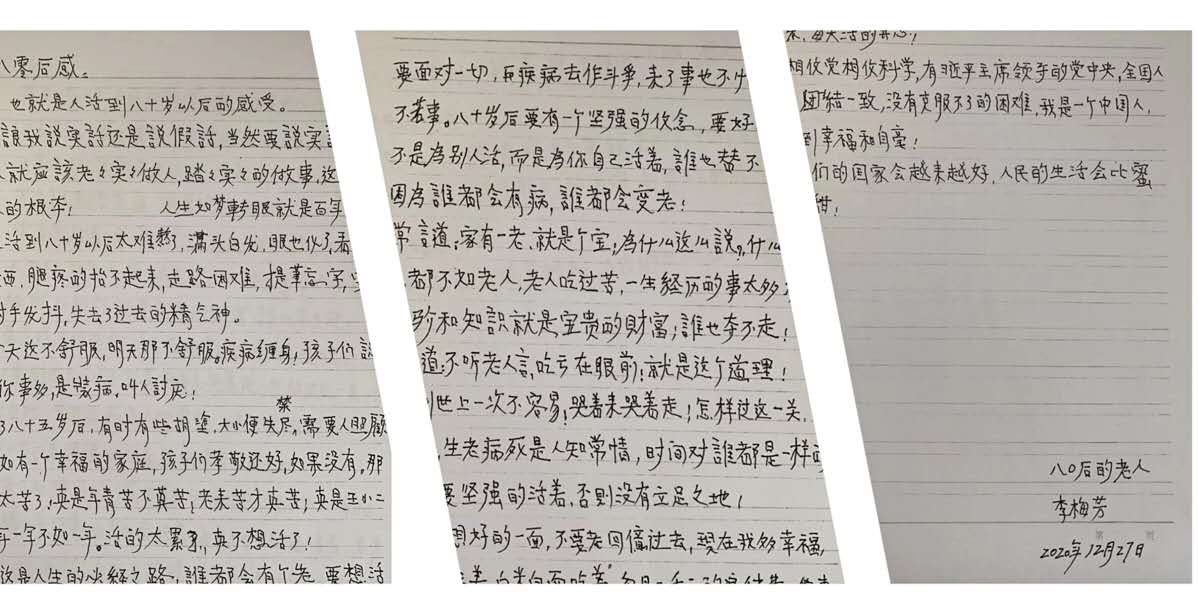 八零后感。
也就是人活到八十岁以后的感受。
讓我说实話还是説假話,当然要説实
就应該老々实々做人,踏々实々的做事,这
的根本! 人生如梦転眼就是百年
活到八十岁以后太难熬了,满头白发,眼也化了,看
西,腿疼的抬不起来,走路困难,提筆忘字,
手发抖,失去了过去的精气神。
天这不舒服,明天那不舒服。疾病缠身,孩子们説
你事多,是装病,叫人討应!
八十五岁后,有时有些胡塗,大小便失禁,需要人照顧
如有一个幸福的家庭,孩子们孝敬还好,如果没有,那
太苦了,真是年青苦不算苦;老来苦才真苦;真是王小二
年一年不如一年。活的太累了,真不想活了!
这是人生的必经之路,誰都会有个老,要想活
要面对一切,与疾病去作斗争,来了事也不
不若事。八十岁后要有一个坚强的信念,要好
不是為别人活,而是為你自己活着,誰也替不
因為誰都会有病,誰都会变老!
常言道:家有一老,就是个宝;為什么这么説?什么
都不如老人,老人吃过苦,一生経历的事太多
和知识就是宝贵的財富;誰也夺不走!
道:不听老人言,吃亏在眼前;就是这个道理!
世上一次不容易,哭着来哭着走;怎样过这一关,
生老病死是人知常情,时间对誰都是一样
要坚强的活着,否則没有立足之地!
好的一面,不要老回憶过去,現在我多幸福,
来,每天活的开心!
相信党相信科学,有习近平主席领导的党中央,全国人
团结一致,没有克服不了的困难,我是一个中国人,
到幸福和自豪!
们的国家会越来越好,人民的生活会比蜜
甜!
八0后的老人
李梅芳
2020年12月27日